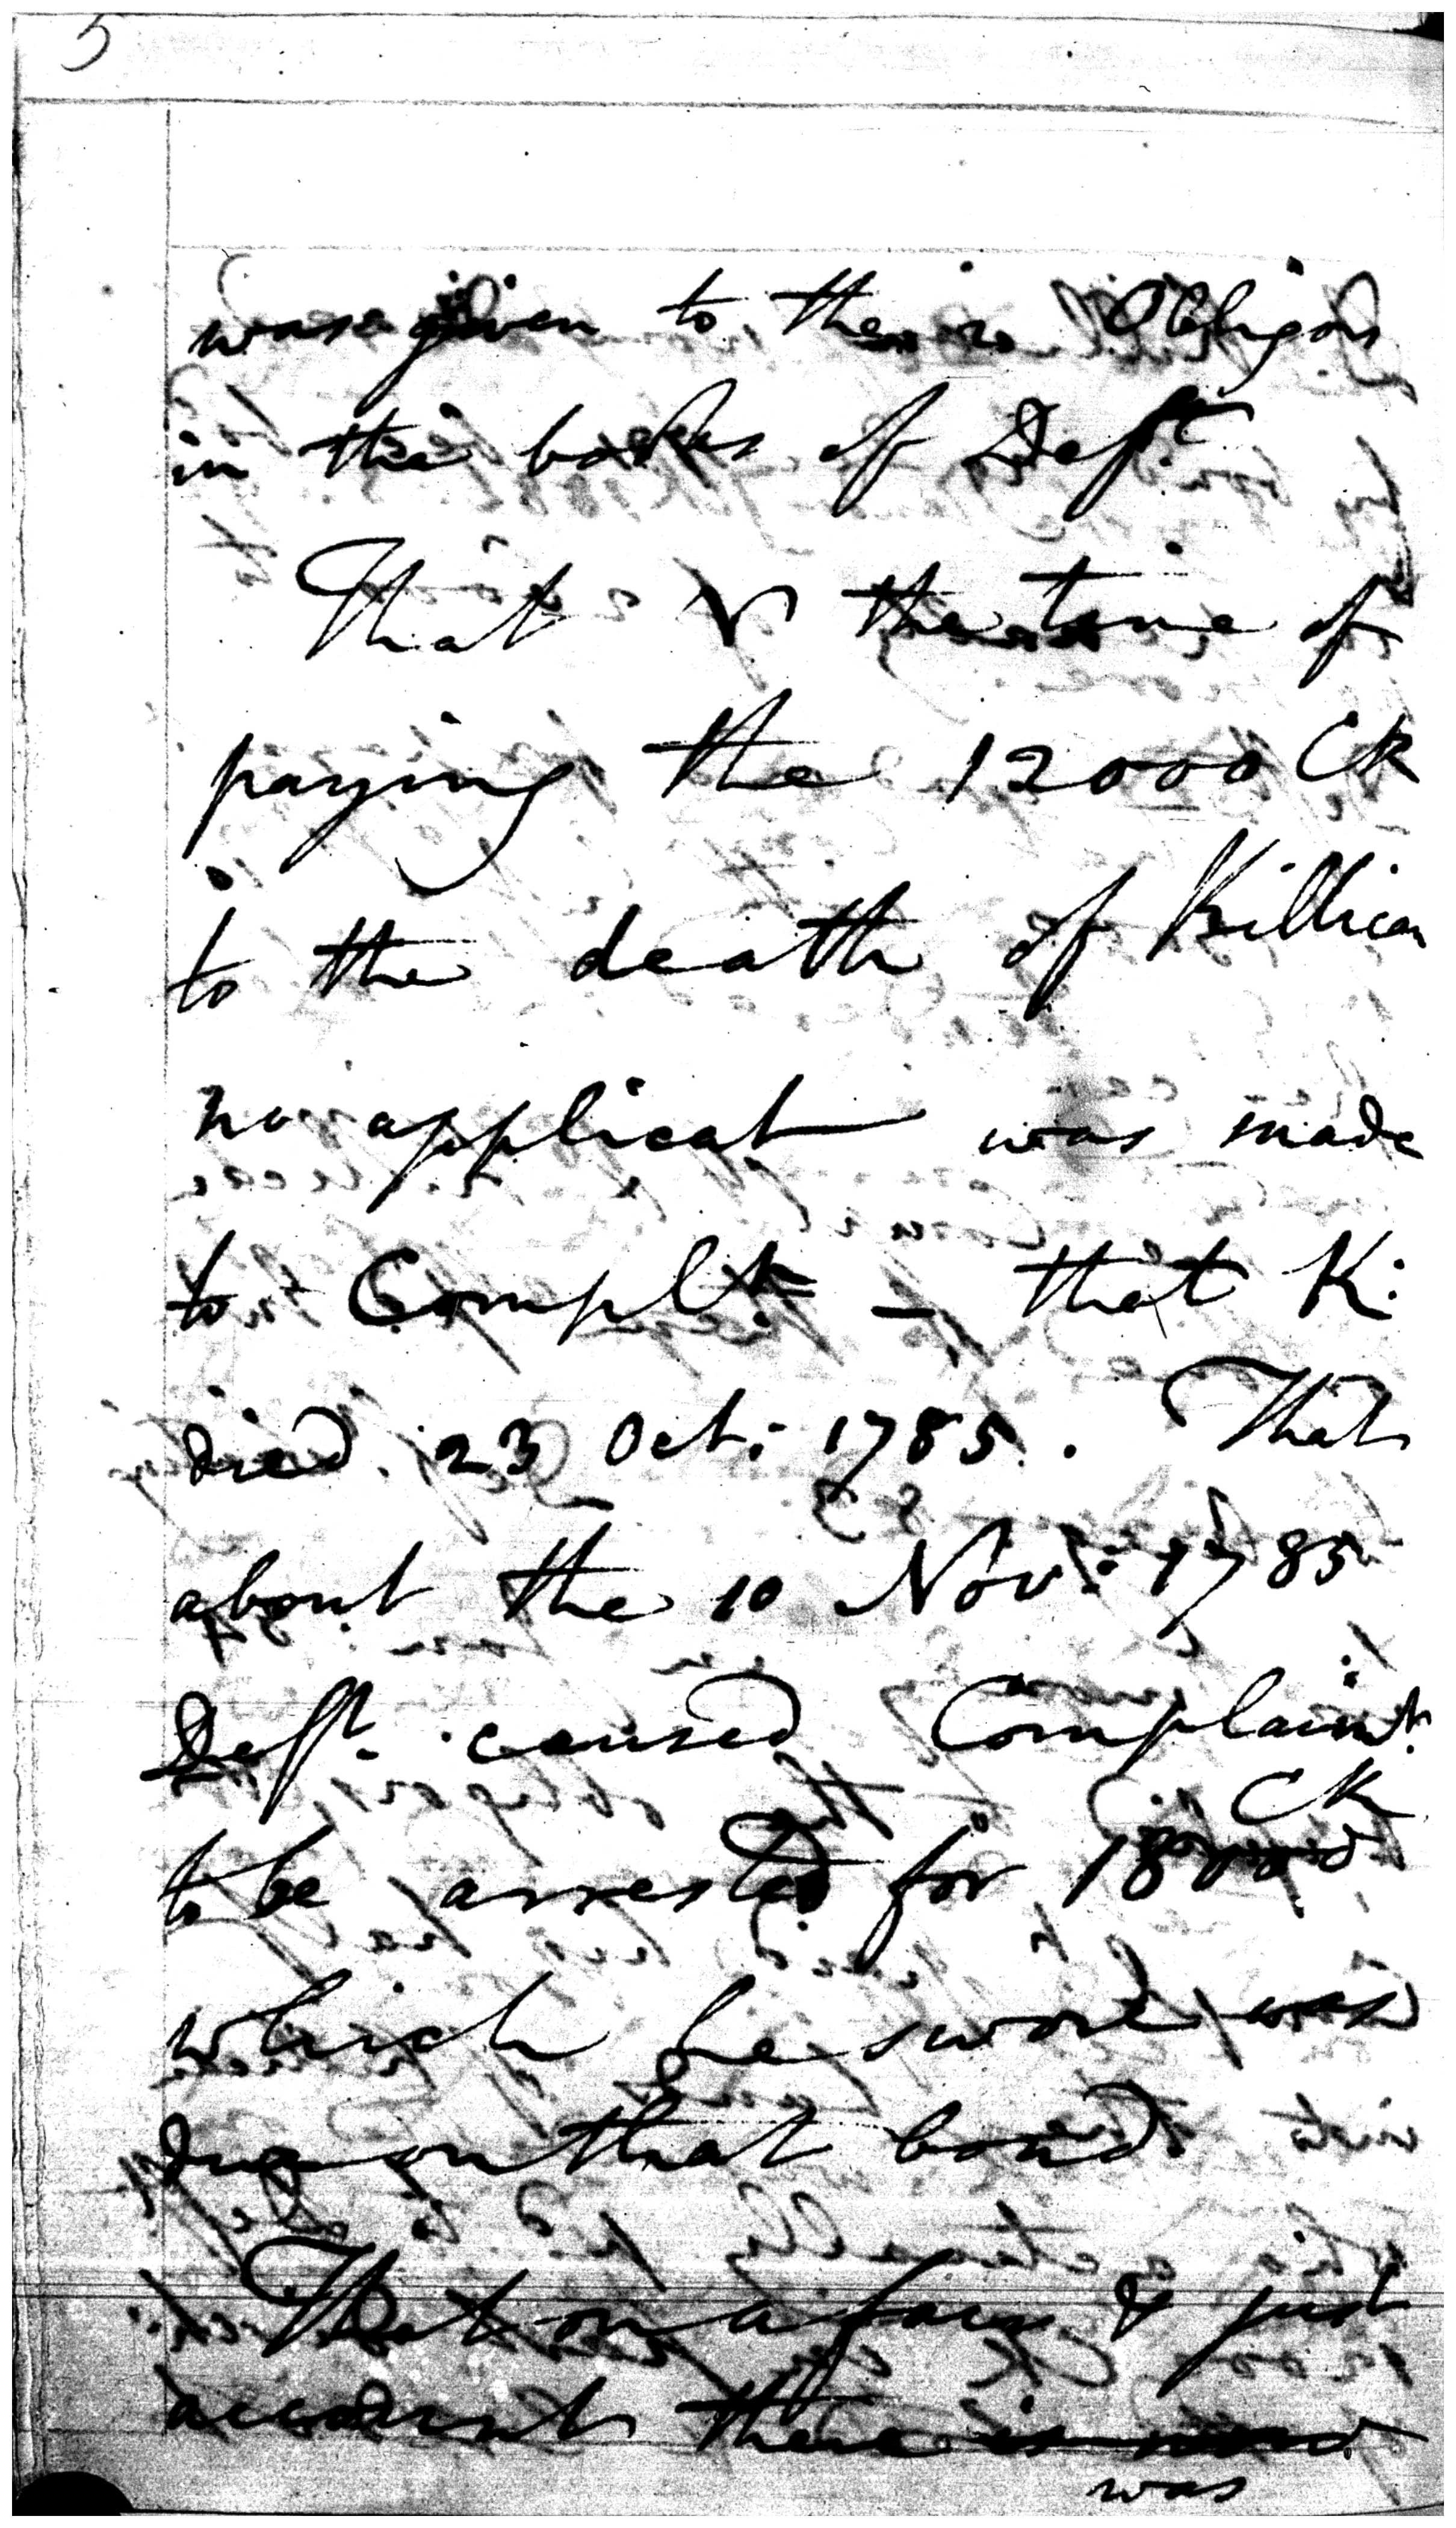 5
was given to the 2 Obligors
in the books of Deft
That fr the time of
paying the 12000 CR
to the death of Killican
no applicat was made
to Complt – that K:
died 23 Oct: 1785. That
about the 10 Nov: 1785
Deft. caused Complaint.
to be arrested for 18000 CR
which he swore was
due on that bond
That on a fair & just
account there is now
was